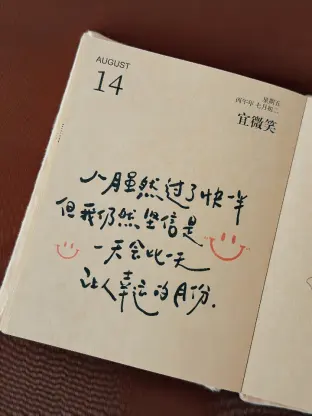 AUGUST
14
星期五
丙午年 七月初二
宜微笑
八月虽然过了快一半
但我仍然坚信是
一天会比一天
让人幸运的月份.